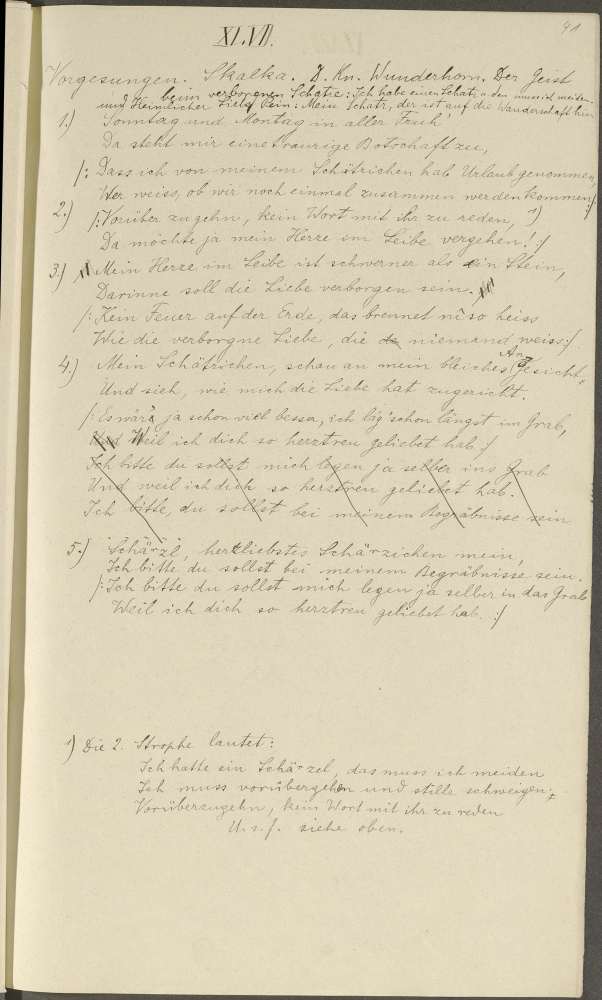 XLVII.
41
Vorgesungen. Skalka. D. Kn. Wunderhorn. Der Geist
beim verborgenen Schatze: Ich habe einen Schatz, u. den muss ich meiden
und Heimlicher Liebe Pein: Mein Schatz, der ist auf die Wanderschaft hin
1.) Sonntag und Montag in aller Fruh'
Da steht mir eine traurige Botschaft zu,
/: Dass ich von meinem Schätzichen hab Urlaub genommen,
Wer weiss, ob wir noch einmal zusammen werden kommen :/
2.) /: Vorüber zu gehn, kein Wort mit ihr zu reden, 1)
Da möchte ja mein Herze im Leibe vergehen! :/
3.) Mein Herze im Leibe ist schwerner als ein Stein,
Darinne soll die Liebe verborgen sein.
/: Kein Feuer auf der Erde, das brennet ni so heiss
Wie die verborgne Liebe, die niemand weiss :/
4.) Mein Schätzichen, schau an mein bleiches Angesicht
Und sieh, wie mich die Liebe hat zugericht.
/: Es wär' ja schon viel besser, ich läg' schon längst im Grab,
Und Weil ich dich so herztreu geliebet hab. :/
Ich bitte du sollst mich legen ja selber ins Grab
Und weil ich dich so herztreu geliebet hab.
Ich bitte, du sollst bei meinem Begräbnisse sein
5.) Schärzl, herzliebstes Schärzichen mein,
Ich bitte du sollst bei meinem Begräbnisse sein.
/: Ich bitte du sollst mich legen ja selber in das Grab
Weil ich dich so herztreu geliebet hab. :/
1) Die 2. Strophe lautet:
Ich hatte ein Schärzel, das muss ich meiden
Ich muss vorübergehen und stille schweigen;
Vorüberzugehn, kein Wort mit ihr zu reden
U. s. f. siehe oben.